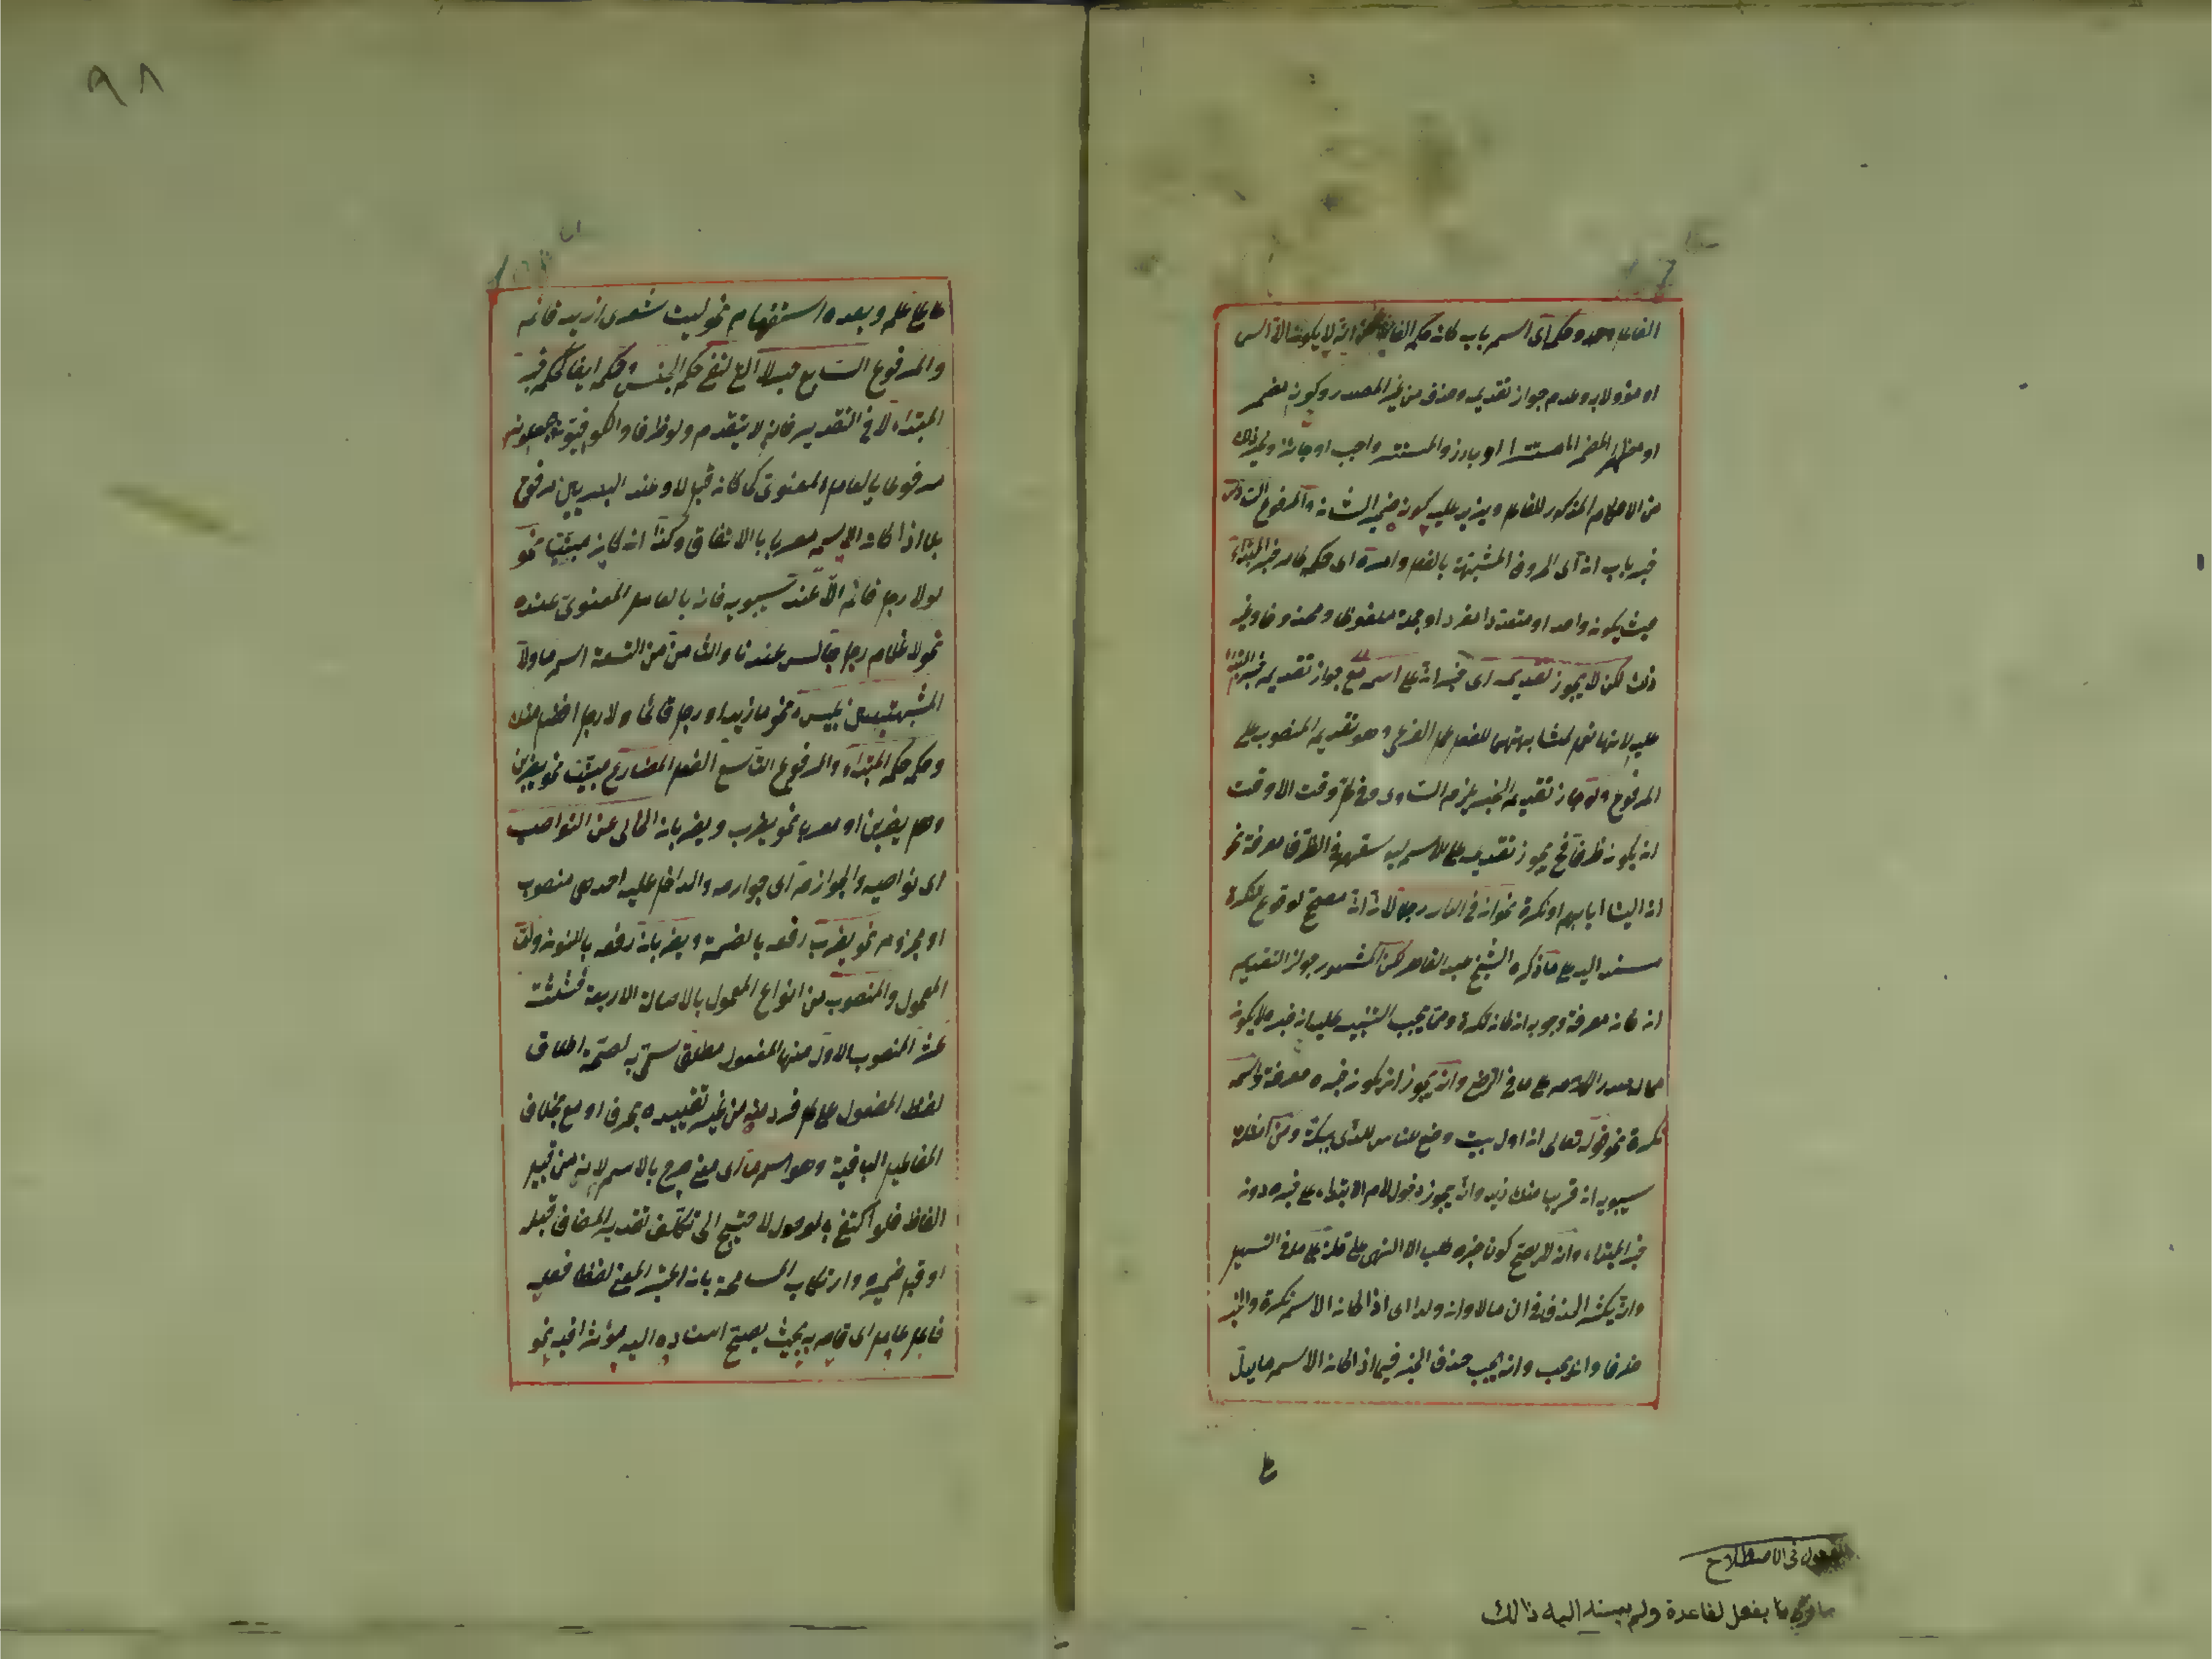 الفاعل وحده وحكمه أى اسم باب كان حكم الفاعل فى انه لا يكون الا اسما
او مؤولا به وعدم جواز تقديمه وحذفه من غير المصدر وكونه مضمر
او مظهر المضمر اما مستترا او بارز والمستتر واجب او جائز وغير ذلك
من الاحكام المذكور للفاعل ويزيد عليه كونه ضمير الشان والمرفوع السادس
خبر باب ان أى الحروف المشبهة بالفعل وامره اى حكمه كامر خبر المبتداء
حيث يكون واحدا او متعددا مفردا او جملة ملفوظا ومحذوفا وغير
ذلك لكن لا يجوز تقديمه اى خبر ان على اسمه مع جواز تقديم خبر المبتداء
عليه لانها تعمل لمشابهتها للفعل عمل الفرعى وهو تقديم المنصوب على
المرفوع ولو جاز تقديم الخبر يلزم التساوى فى كل وقت الا وقت
ان يكون ظرفا فح يجوز تقديمه على الاسم لتوسعهم فى الظرف معرفة نحو
ان الينا ايابهم او نكرة نحو ان فى الدار رجلا لان ان مصحح لوقوع النكرة
مسند اليه على ما ذكره الشيخ عبد القاهر لكن المشهور جواز التقديم
ان كان معرفة ووجوبه ان كان نكرة ومما يجب التنبيه عليه ان خبره لا يكون
مما له صدر الكلام على ما فى الرضى وانه يجوز ان يكون خبره معرفة واسمه
نكرة نحو قوله تعالى ان اول بيت وضع للناس للذى ببكة ومن امثلة
سيبويه ان قريبا منك زيد وانه يجوز دخول لام الابتداء على خبره دون
خبر المبتداء وانه لا يصح كون خبره طلب الا النهى على قلة على ما فى التسهيل
وانه يكثر الحذف فى ان مالا وان ولدا اى اذا كان الاسم نكرة والخبر
ظرفا وانه يجب حذف الخبر فيما اذا كان الاسم ما يدل
المفعول فى الاصطلاح
بفعل لفاعله ولم يسند اليه ذالك
٩٨
على علم وبعده استفهام نحو ليت شعرى ازيد قائم
والمرفوع السابع خبر لا التى لنفى حكم الجنس وحكمه ايضا كحكم خبر
المبتداء لا فى التقديم فانه لا يتقدم ولو ظرفا والكوفيون يجعلونه
مرفوعا بالعامل المعنوى كما كان قبل لا وعند البصريين مرفوع
بها اذا كان الاسم معربا بالاتفاق وكذا ان كان مبنيا نحو
لا رجل قائم الا عند سيبويه فانه بالعامل المعنوى عنده
نحو لا غلام رجل جالس عندنا والثامن من التسعة اسم ما ولا
المشبهتين بليس نحو ما زيد او رجل قائما ولا رجل افضل منك
وحكمه حكم المبتداء والمرفوع التاسع الفعل المضارع مبنيا نحو يضربن
وهل يضربن او معربا نحو يضرب ويضربان الخالى عن النواصب
اى نواصبه والجوازم أى جوازمه والداخل عليه احدهن منصوب
او مجزوم نحو يضرب رفعه بالضمة ويضربان رفعه بالنون واما
المعمول والمنصوب من انواع المعمول بالاصالة الاربعة فثلثة
عشر المنصوب الاول منها المفعول مطلق سمى به لصحة اطلاق
لفظ المفعول على كل فرد منه من غير تقييده بحرف او مع بخلاف
المفاعيل الباقية وهو اسم ما اى معنى صرح بالاسم لانه من قبيل
الفاظ فلو اكتفى بالموصول لاحتيج الى تكلف تقدير المضاف قبله
او قبل ضميره وارتكاب المسامحة بان اعتبر المعنى لفظا فعله
فاعل عامل اى قام به بحيث يصح اسناده اليه مؤثرا فيه نحو